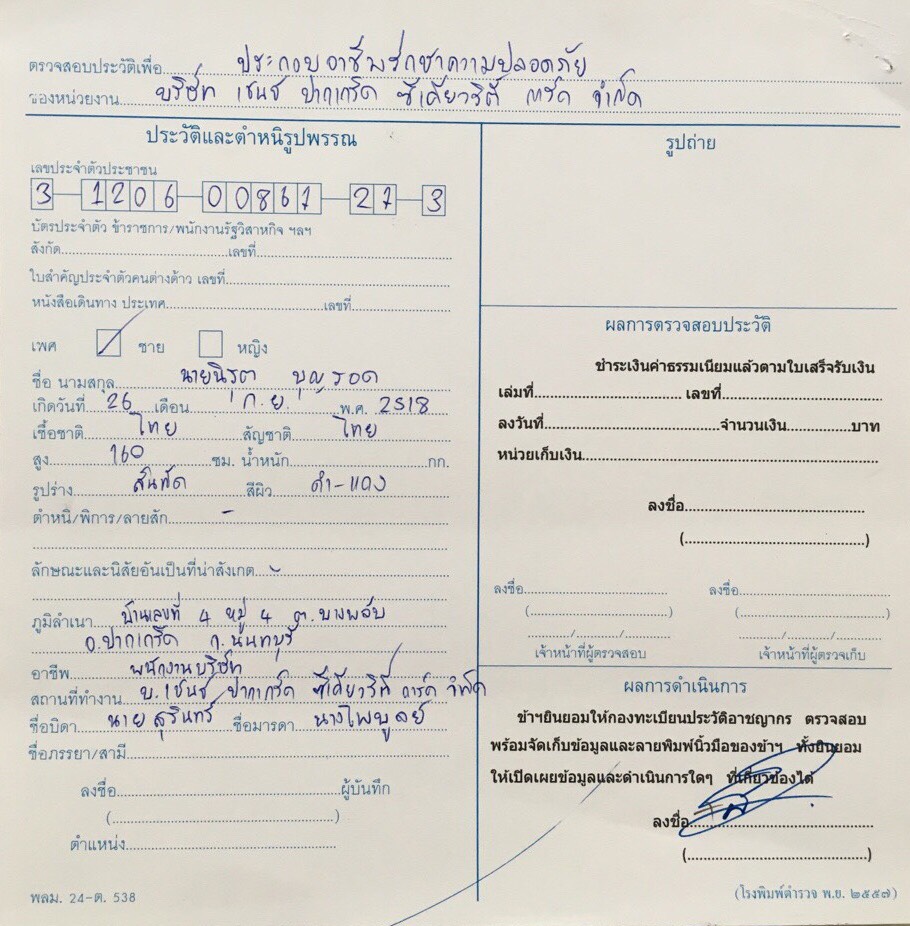 ตรวจสอบประวัติเพื่อ ประกอบอาชีพรักษาความปลอดภัย
ของหน่วยงาน บริษัท เชนช ปากเกร็ด ซีเคียวริตี้ การ์ด จำกัด
ประวัติและตำหนิรูปพรรณ
เลขประจำตัวประชาชน
3 1206 00867 27 3
บัตรประจำตัว ข้าราชการ/พนักงานรัฐวิสาหกิจ ฯลฯ
สังกัด เลขที่
ใบสำคัญประจำตัวคนต่างด้าว เลขที่
หนังสือเดินทาง ประเทศ เลขที่
เพศ ชาย หญิง
ชื่อ นามสกุล นายนิรุตา บุญรอด
เกิดวันที่ 26 เดือน ก.ย. พ.ศ. 2518
เชื้อชาติ ไทย สัญชาติ ไทย
สูง 160 ซม. น้ำหนัก กก.
รูปร่าง สันทัด สีผิว ดำ-แดง
ตำหนิ/พิการ/ลายสัก -
ลักษณะและนิสัยอันเป็นที่น่าสังเกต -
ภูมิลำเนา บ้านเลขที่ 4 หมู่ 4 ต.บางพลับ
อ.ปากเกร็ด จ.นนทบุรี
อาชีพ พนักงานบริษัท
สถานที่ทำงาน บ.เชนช ปากเกร็ด ซีเคียวริตี้ การ์ด จำกัด
ชื่อบิดา นายสุรินทร์ ชื่อมารดา นางไพบูลย์
ชื่อภรรยา/สามี
ลงชื่อ ผู้บันทึก
( )
ตำแหน่ง
พลม. 24-ต. 538
รูปถ่าย
ผลการตรวจสอบประวัติ
ชำระเงินค่าธรรมเนียมแล้วตามใบเสร็จรับเงิน
เล่มที่ เลขที่
ลงวันที่ จำนวนเงิน บาท
หน่วยเก็บเงิน
ลงชื่อ
( )
ลงชื่อ ลงชื่อ
( ) ( )
/ / / /
เจ้าหน้าที่ผู้ตรวจสอบ เจ้าหน้าที่ผู้ตรวจเก็บ
ผลการดำเนินการ
ข้าฯยินยอมให้กองทะเบียนประวัติอาชญากร ตรวจสอบ
พร้อมจัดเก็บข้อมูลและลายพิมพ์นิ้วมือของข้าฯ ทั้งยินยอม
ให้เปิดเผยข้อมูลและดำเนินการใดๆ ที่เกี่ยวข้องได้
ลงชื่อ
( )
(โรงพิมพ์ตำรวจ พ.ย. ๒๕๕๗)